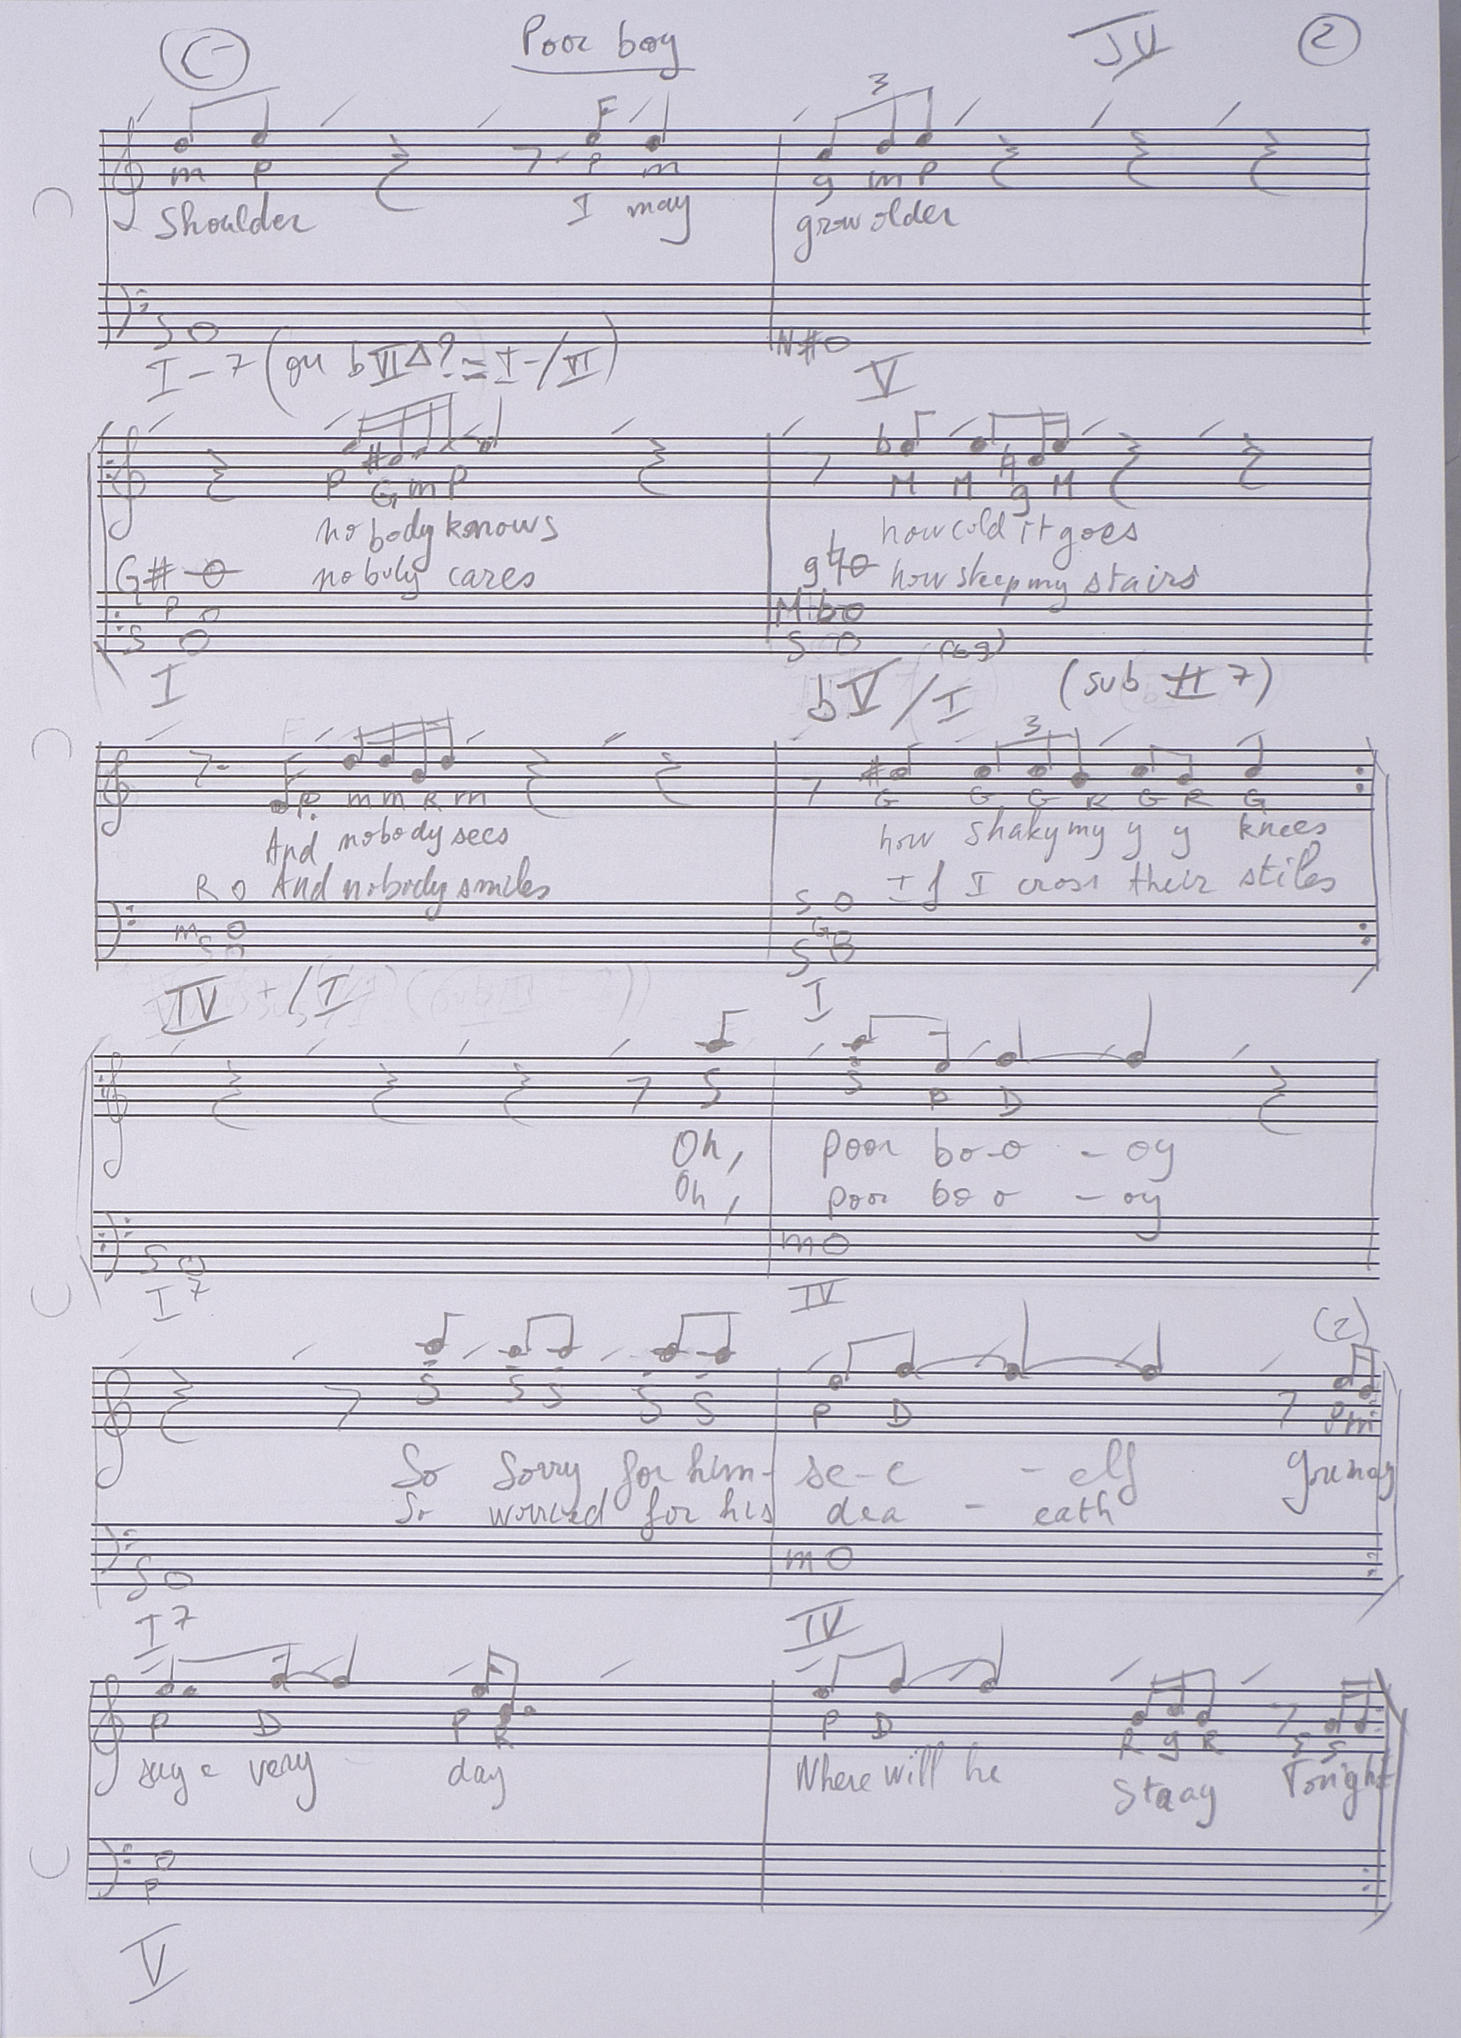 C- Poor boy IV 2
3
F
m P P m g m P
Shoulder I may grow older
S N#
I-7 (ou bVIΔ? = I-/VI) V
P # G m P b M M A g M
nobody knows how cold it goes
G# nobody cares g♮ how steep my stairs
P Mib
S S
I bV/I (sub II 7)
3
P m m R m # G G G R G R G
And nobody sees how shaky my y y knees
R And nobody smiles S If I cross their stiles
m G
S S
IV+/I I
S S P D
Oh, poor bo-o - oy
Oh, poor bo o - oy
S m
I7 IV
(2)
S S S S S P D P m
So Sorry for him- se-e - elf you may
So worried for his dea - eath
S m
I7 IV
P D P R P D R g R S S
say e very day Where will he Staay Tonight
P
V